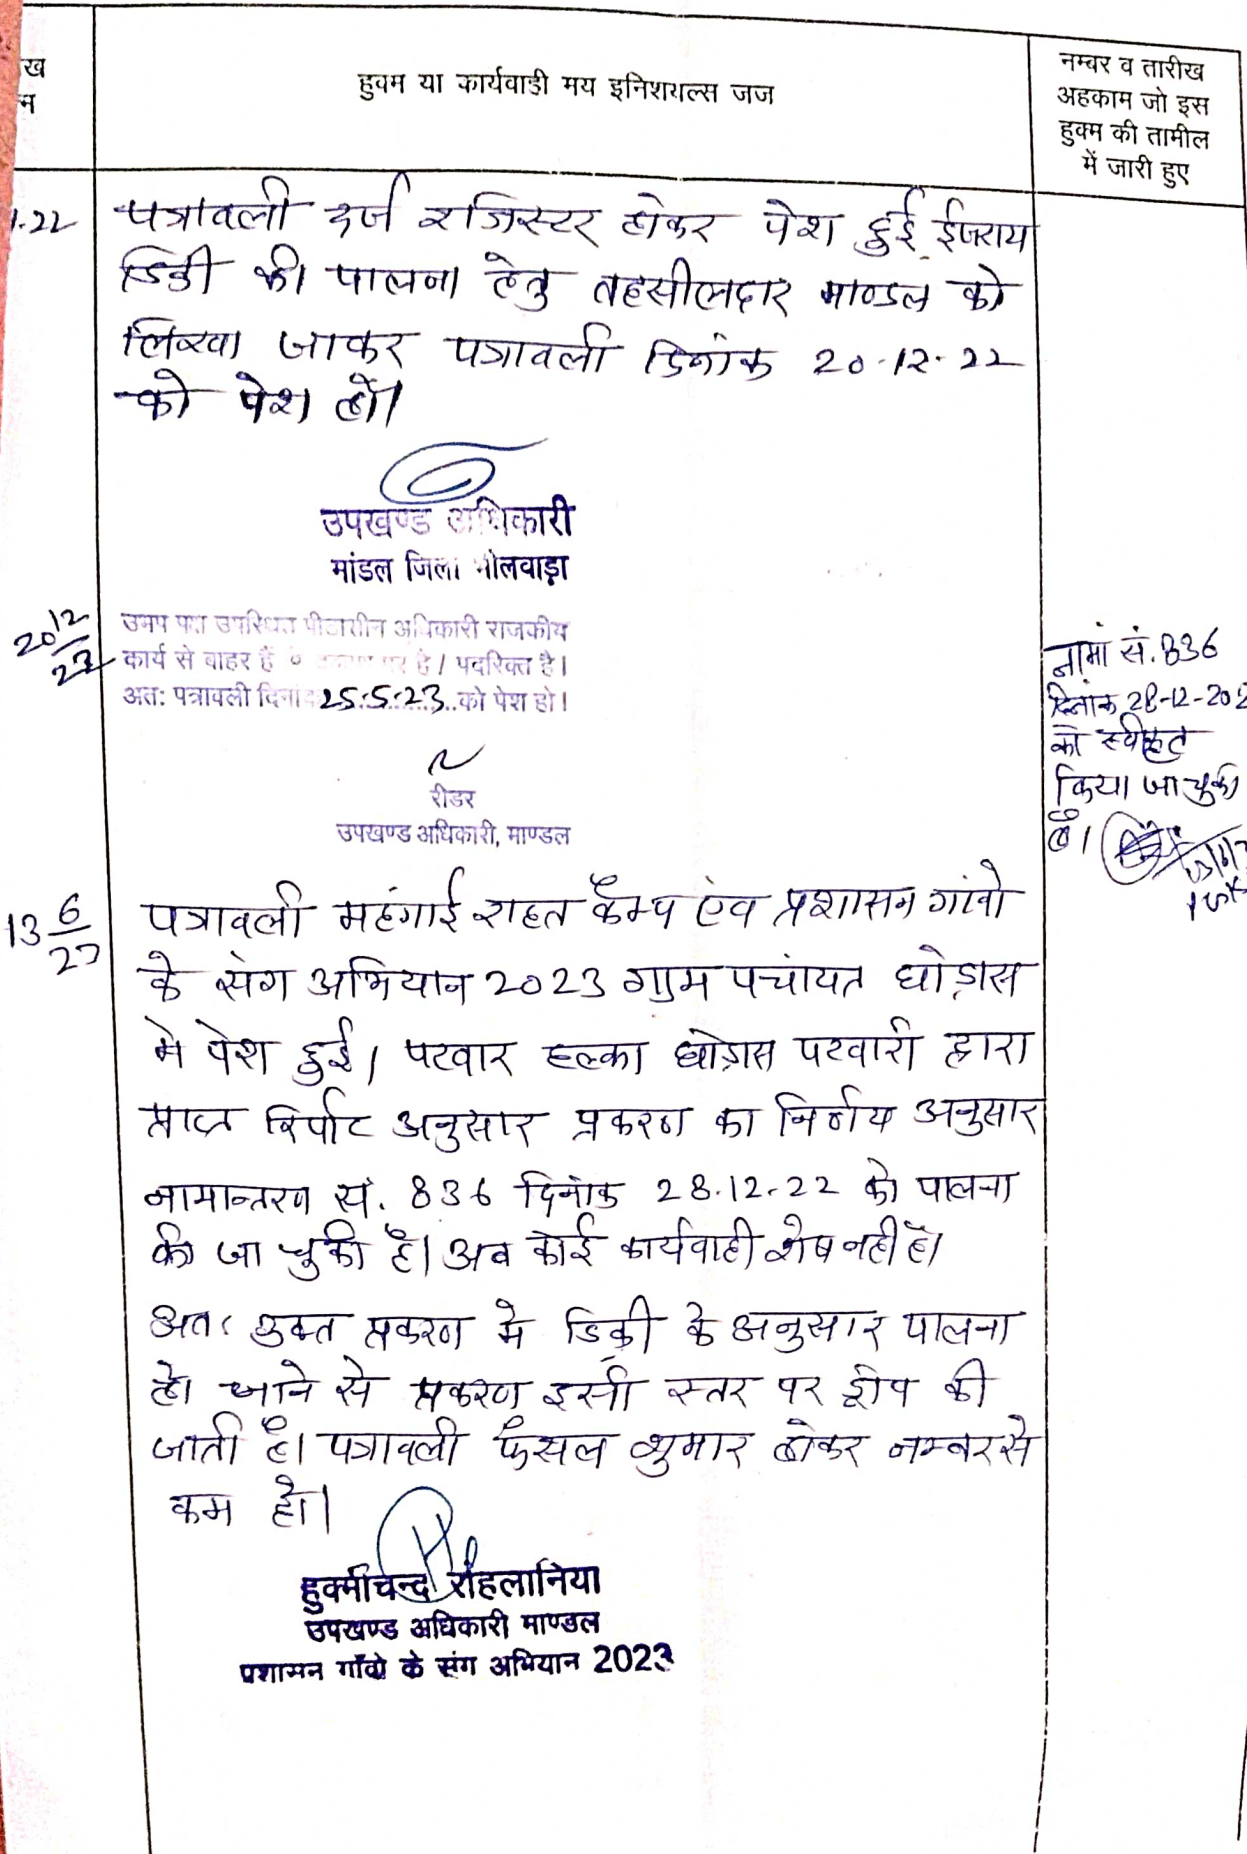 ख
म
हुक्म या कार्यवाही मय इनिशयल्स जज
नम्बर व तारीख
अहकाम जो इस
हुक्म की तामील
में जारी हुए
1.22
पत्रावली दर्ज रजिस्टर होकर पेश हुई ईजराय
डिक्री की पालना हेतु तहसीलदार माण्डल को
लिखा जाकर पत्रावली दिनांक 20.12.22
को पेश हो।
उपखण्ड अधिकारी
मांडल जिला भीलवाड़ा
20/12/22
उभय पक्ष उपस्थित पीठासीन अधिकारी राजकीय
कार्य से बाहर हैं पर है / पदरिक्त है।
अत: पत्रावली दिनांक 25.5.23 को पेश हो।
रीडर
उपखण्ड अधिकारी, माण्डल
नामां सं. 836
दिनांक 28-12-202
को स्वीकृत
किया जा चुका
है।
13 6/23
पत्रावली महंगाई राहत कैम्प एंव प्रशासन गांवो
के संग अभियान 2023 ग्राम पचांयत घोड़ास
मे पेश हुई। पटवार हल्का घोड़ास पटवारी द्वारा
प्राप्त रिर्पोट अनुसार प्रकरण का निर्णय अनुसार
नामान्तरण सं. 836 दिनांक 28.12.22 को पालना
की जा चुकी है। अब कोई कार्यवाही शेष नही है।
अतः उक्त प्रकरण मे डिक्री के अनुसार पालना
हो जाने से प्रकरण इसी स्तर पर ड्रोप की
जाती है। पत्रावली फैसल शुमार होकर नम्बर से
कम हो।
हुक्मीचन्द रोहलानिया
उपखण्ड अधिकारी माण्डल
प्रशासन गाँवो के संग अभियान 2023